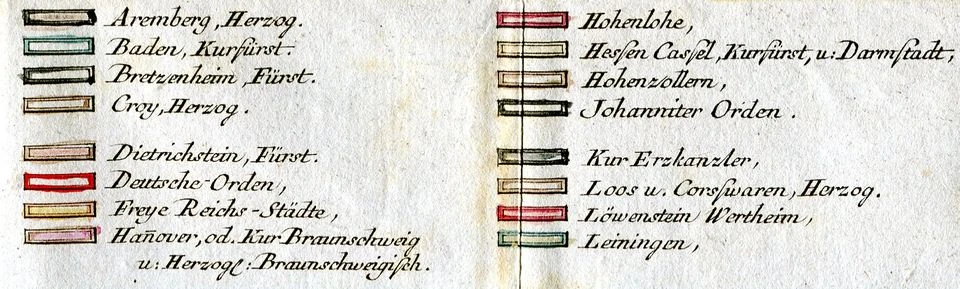 Aremberg, Herzog.
Baden, Kurfürst.
Bretzenheim, Fürst.
Croy, Herzog.
Dietrichstein, Fürst.
Deutsche-Orden,
Freye Reichs-Städte,
Han̅over, od. Kur Braunschweig
u: Herzogl: Braunschweigisch.
Hohenlohe,
Hessen Cassel, Kurfürst, u: Darmstadt,
Hohenzollern,
Johanniter Orden.
Kur Erzkanzler,
Loos u. Corsswaren, Herzog.
Löwenstein Wertheim,
Leiningen,